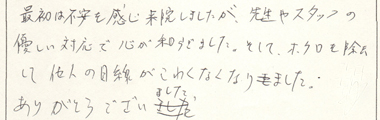 最初は不安を感じ来院しましたが、先生やスタッフの
優しい対応で心が和らぎました。そして、ホクロを除去
して他人の目線がこわくなくなりました。
ありがとうございました